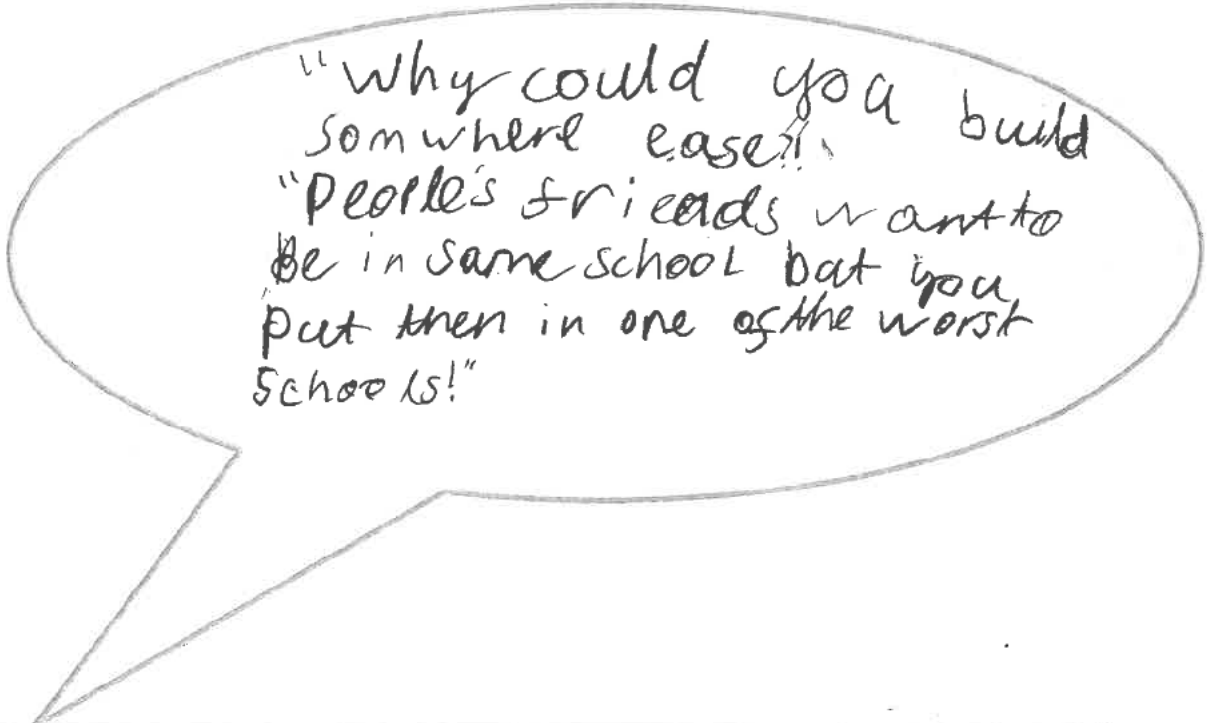 "Why could you build
somwhere ease?!
"People's friends want to
be in same school but you
put then in one of the worst
schools!"